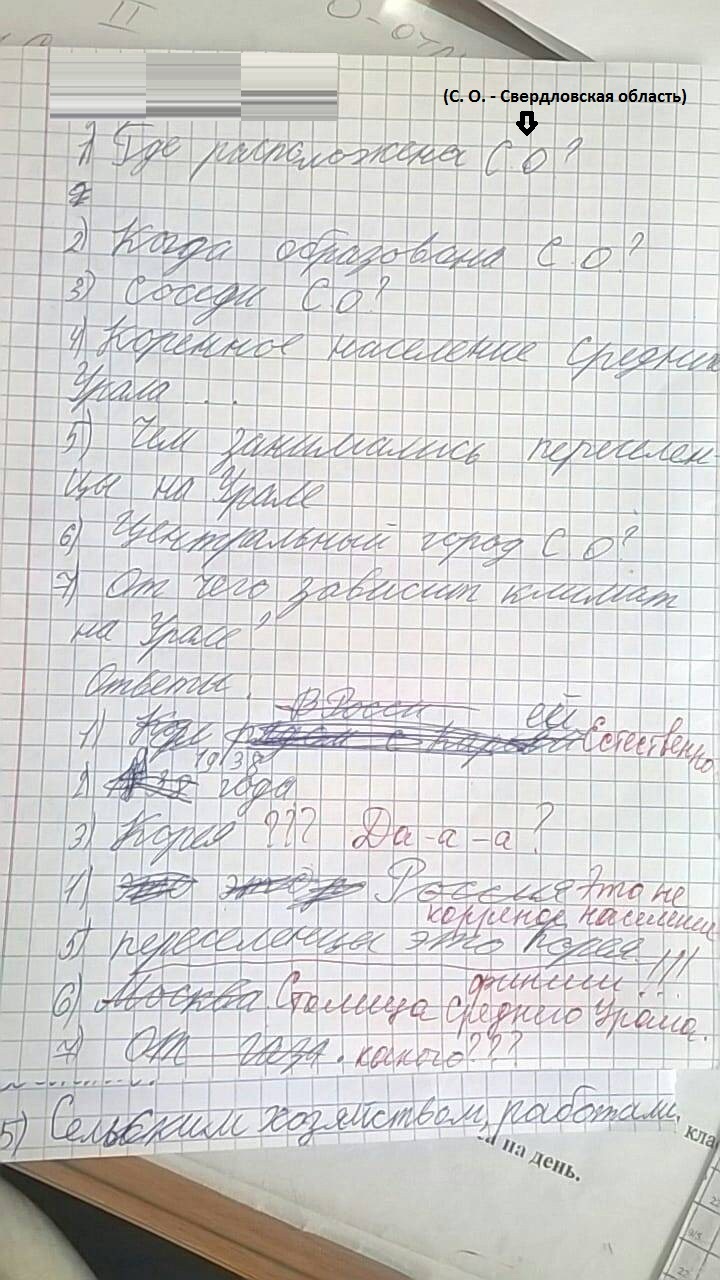 II
О-отл
(С. О. - Свердловская область)
1) Где расположена С.О?
2) Когда образована С.О?
3) Соседи С.О?
4) Коренное население Средних
Урала . .
5) Чем занимались переселен-
цы на Урале
6) Центральный город С.О?
7) От чего зависит климат
на Урале?
Ответы:
В Росси ей
1) Естественно
1938
2) года
3) Корея ??? Да-а-а?
4) Россия Это не
корреное население
5) переселенцы это Корея
финиш !!!
6) Москва. Столица среднего Урала.
7) От газа. какого???
5) Сельским хозяйством, работали,
на день.
кла